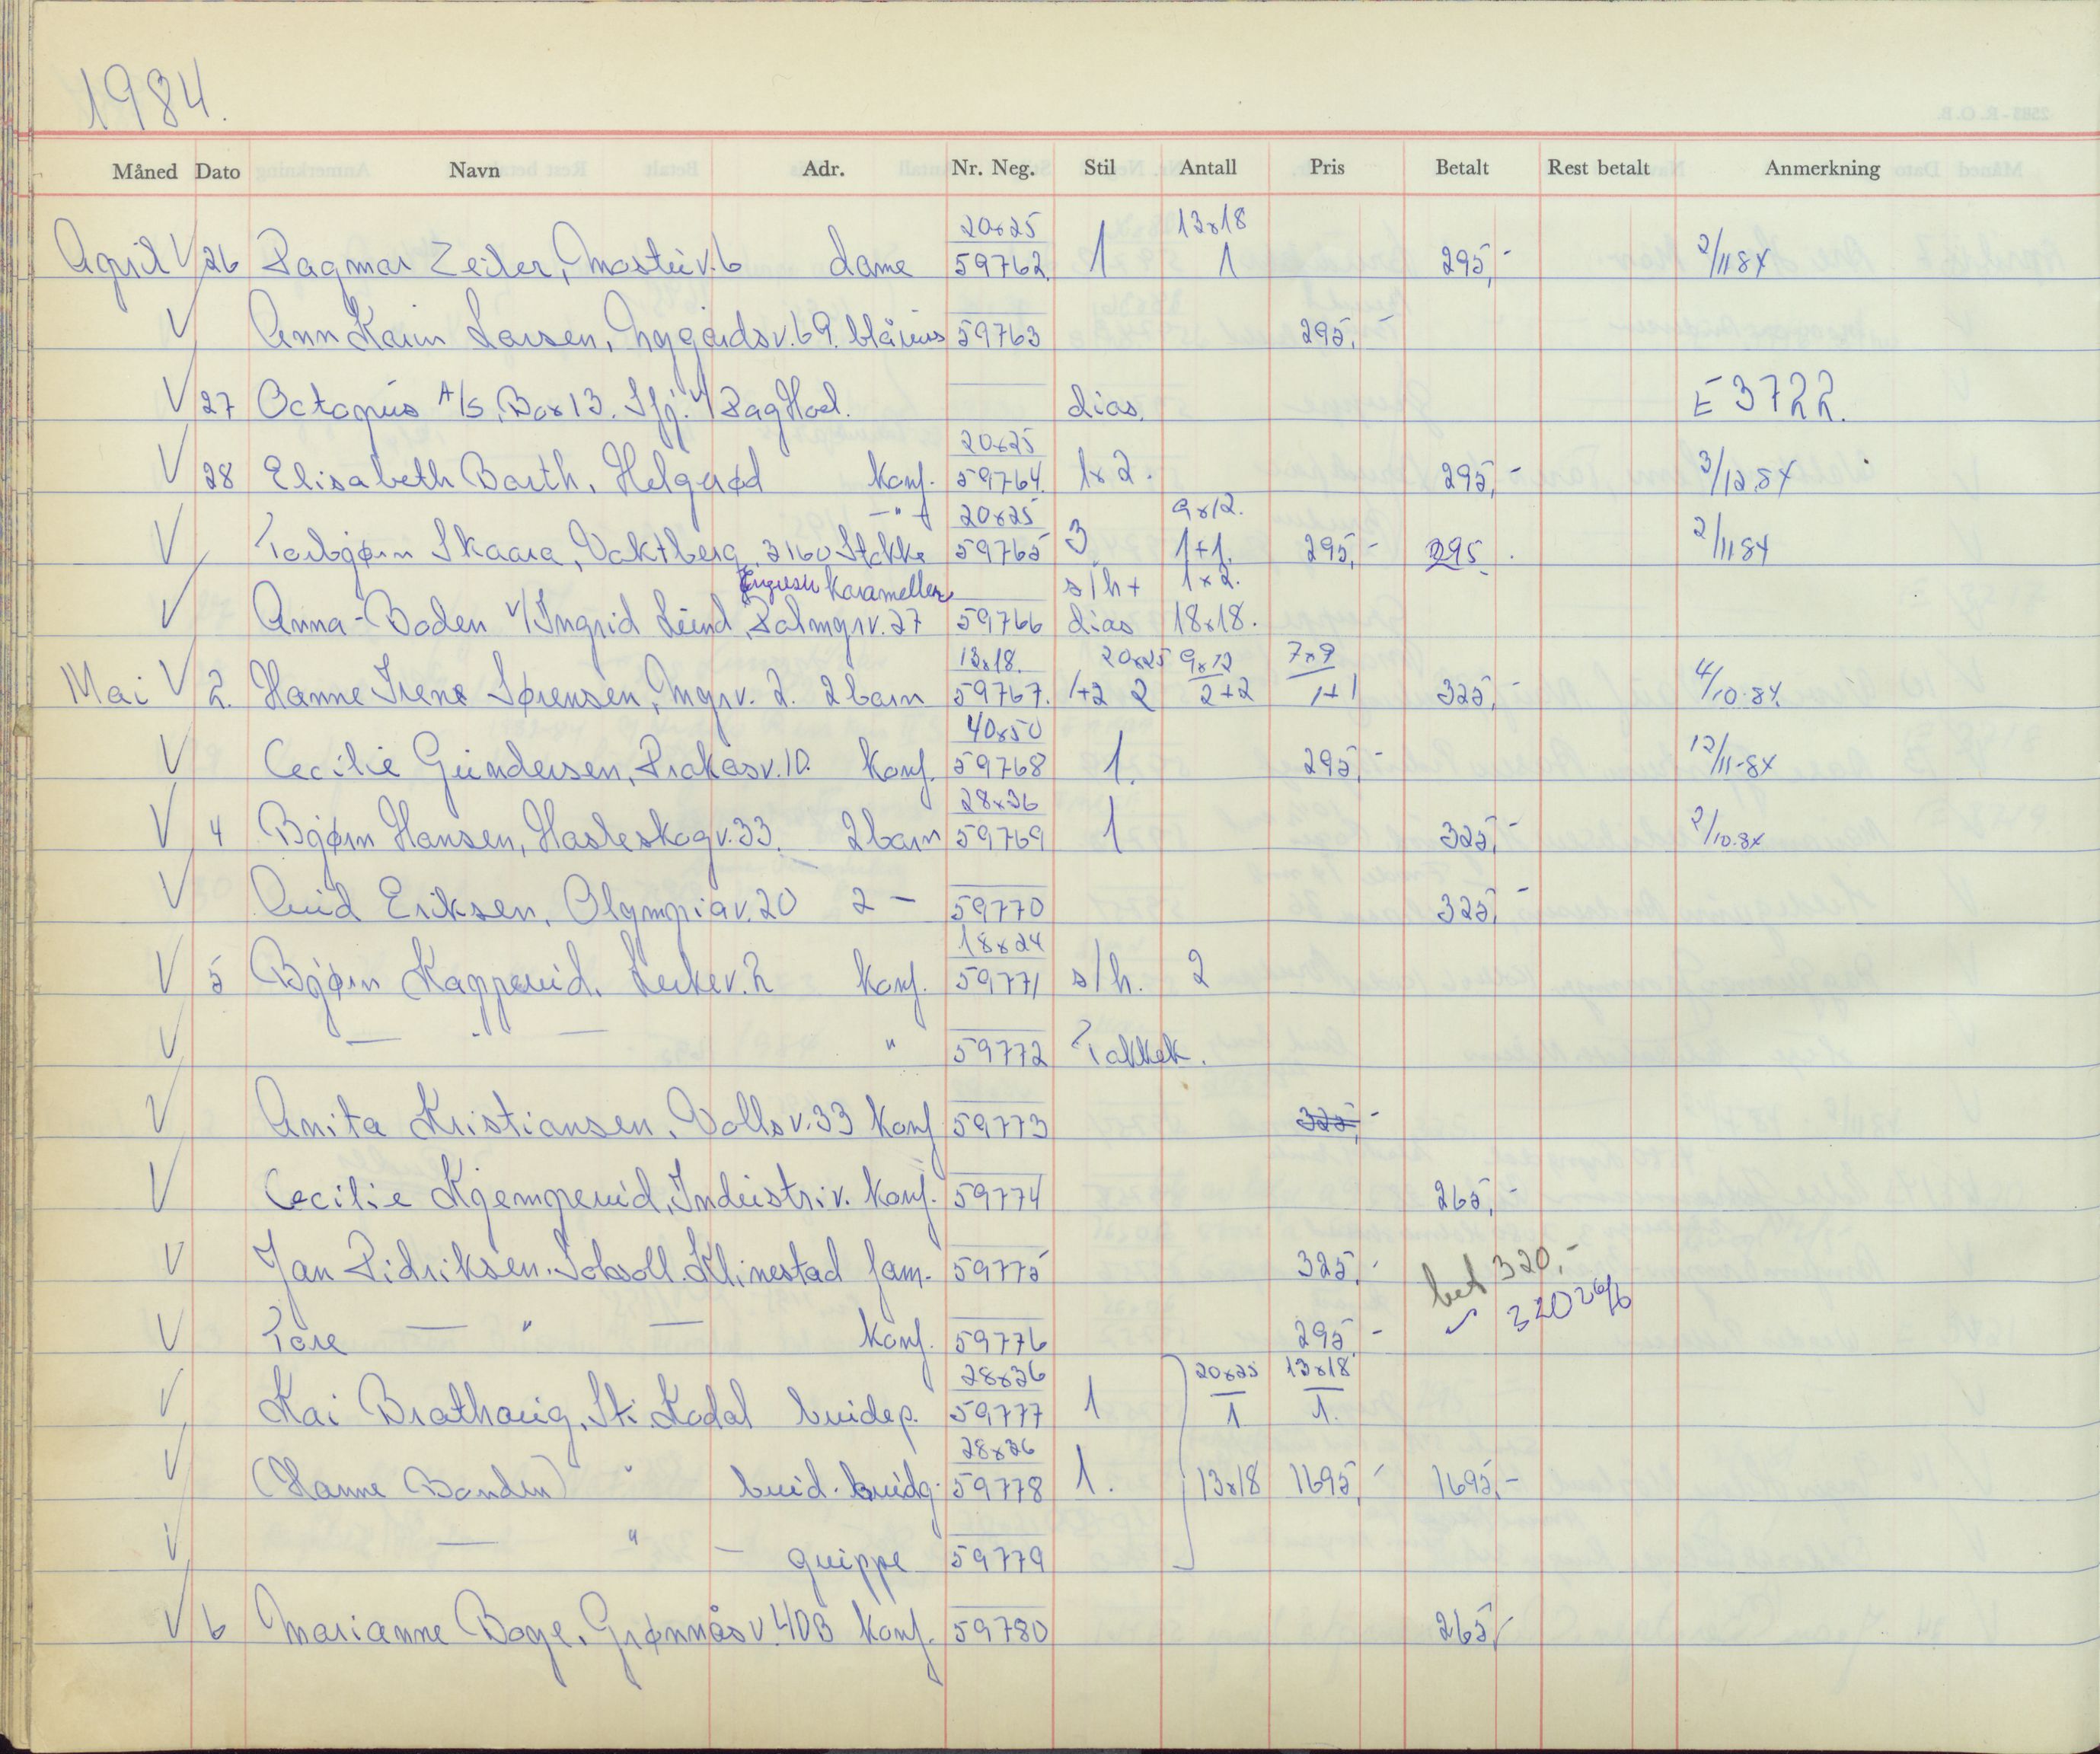 1984.
Måned Dato Navn Adr. Nr. Neg. Stil Antall Pris Betalt Rest betalt Anmerkning
20x25 13x18
April V 26 Dagmar Zeiler, v. 6 dame 59762. 1 1 295,- 2/11 84
V Ann Karin Larsen, Nygårdsv. 69. blåruss 59763 295,-
V 27 Octopus A/S, Box 13. Sfj. v/ Dag Hoel. dias. E 3722.
20x25
V 28 Elisabeth Barth, Helgerød konf. 59764. 1x2. 295,- 3/12.84
-"- 20x25 9x12.
V Torbjørn Skaara, Vaktberg, 3160 Stokke 59765 3 1+1. 295,- 295,- 2/11 84
Karameller s/h + 1x2.
V Anna-Boden v/Ingrid Lund, Palmgrv. 27 59766 dias 18x18.
13x18. 20x25 9x12 7x9
Mai V 2. Hanne Irene Sørensen, Mgrv. 2. 2 barn 59767. 1+2 2 2+2 1+1 325,- 4/10.84.
40x50
V Cecilie Gundersen, v. 10. konf. 59768 1. 295,- 12/11-84
28x36
V 4 Bjørn Hansen, Hasleskogv. 33. 2 barn 59769 1 325,- 2/10.84
V Arvid Eriksen, Olympiav. 20 2 - 59770 325,-
18x24
V 5 Bjørn Kapperud. Lerkev. 2 konf. 59771 s/h. 2
V — " — " 59772 Takkek.
V Anita Kristiansen, Vollsv. 33 konf 59773 325,-
V Cecilie Kjemperud, Industriv. konf. 59774 265,-
V Jan Didriksen. Solvoll. Klinestad fam. 59775 325,- bet 320,-
V Tore — " — konf. 59776 295,- 320 26/6
28x36 20x25 13x18
V Kai Brathaug, St. Kodal brudep. 59777 1 1 1.
28x36
V (Hanne Banden) " brud. brudg. 59778 1. 13x18 1695,- 1695,-
V — " — gruppe 59779
V 6 Marianne Boge, Grønnåsv. 40B konf. 59780 265,-